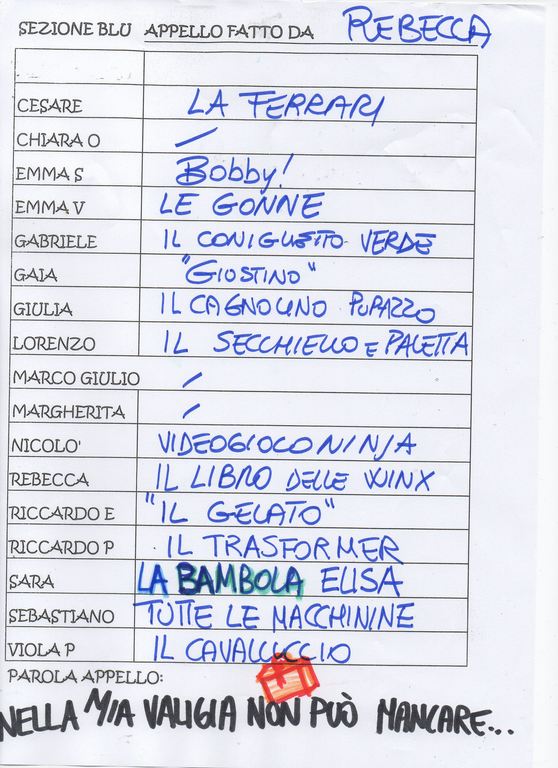 SEZIONE BLU APPELLO FATTO DA REBECCA
CESARE LA FERRARI
CHIARA O /
EMMA S Bobby!
EMMA V LE GONNE
GABRIELE IL CONIGLIETTO VERDE
GAIA "GIOSTINO"
GIULIA IL CAGNOLINO PUPAZZO
LORENZO IL SECCHIELLO E PALETTA
MARCO GIULIO /
MARGHERITA /
NICOLO' VIDEOGIOCO NINJA
REBECCA IL LIBRO DELLE WINX
RICCARDO E "IL GELATO"
RICCARDO P IL TRASFORMER
SARA LA BAMBOLA ELISA
SEBASTIANO TUTTE LE MACCHININE
VIOLA P IL CAVALLUCCIO
PAROLA APPELLO:
NELLA MIA VALIGIA NON PUÒ MANCARE...